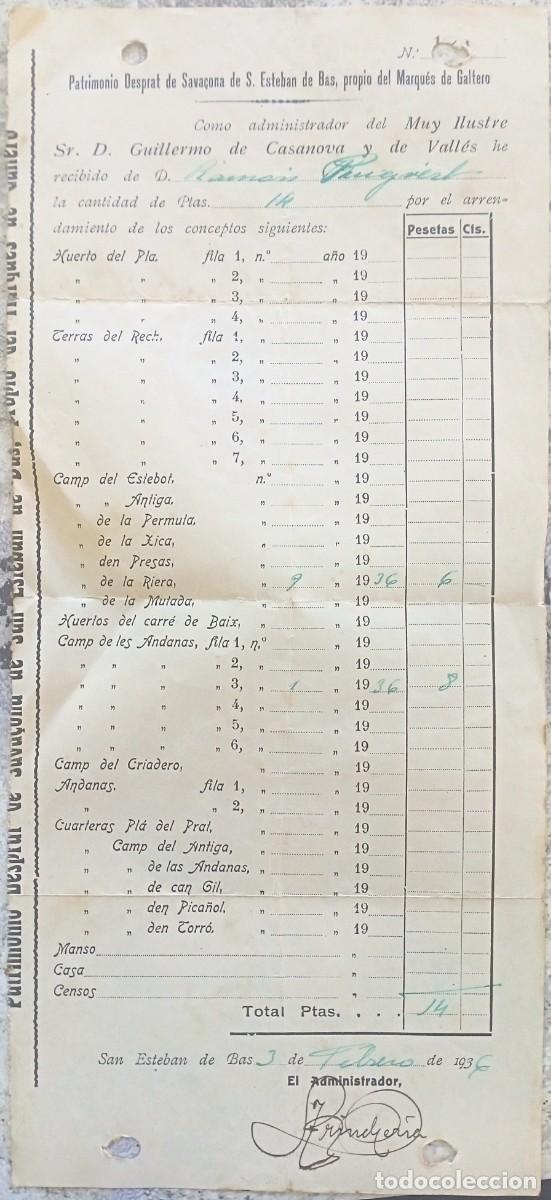 N.º
Patrimonio Desprat de Savaçona de S. Esteban de Bas, propio del Marqués de Galtero
Como administrador del Muy Ilustre
Sr. D. Guillermo de Casanova y de Vallés he
recibido de D. Ramón Puigvert
la cantidad de Ptas. 14 por el arren-
damiento de los conceptos siguientes: Pesetas Cts.
Huerto del Pla. fila 1, n.º año 19
" " " 2, " " 19
" " " 3, " " 19
" " " 4, " " 19
Terras del Rech. fila 1, " " 19
" " " 2, " " 19
" " " 3, " " 19
" " " 4, " " 19
" " " 5, " " 19
" " " 6, " " 19
" " " 7, " " 19
Camp del Estebot. n.º " 19
" " Antiga. " " 19
" de la Permuta. " " 19
" de la Xica, " " 19
" den Presas, " " 19
" de la Riera, " 9 " 1936 6
" de la Mulada, " " 19
Huertos del carré de Baix, " " 19
Camp de les Andanas, fila 1, n.º " 19
" " " " 2, " " 19
" " " " 3, " 1 " 1936 8
" " " " 4, " " 19
" " " " 5, " " 19
" " " " 6, " " 19
Camp del Criadero, " " 19
Andanas. fila 1, " " 19
" " 2, " " 19
Cuarteras Plá del Prat, " " 19
" Camp del Antiga, " " 19
" " de las Andanas, " " 19
" " de can Gil, " " 19
" " den Picañol. " " 19
" " den Torró. " " 19
Manso "
Casa "
Censos "
Total Ptas. . . . 14
San Esteban de Bas 3 de Febrero de 1936
El Administrador,
Trincheria
Patrimonio Desprat de Savaçona de San Esteban de Bas, propio del Marqués de Galtero
todocoleccion